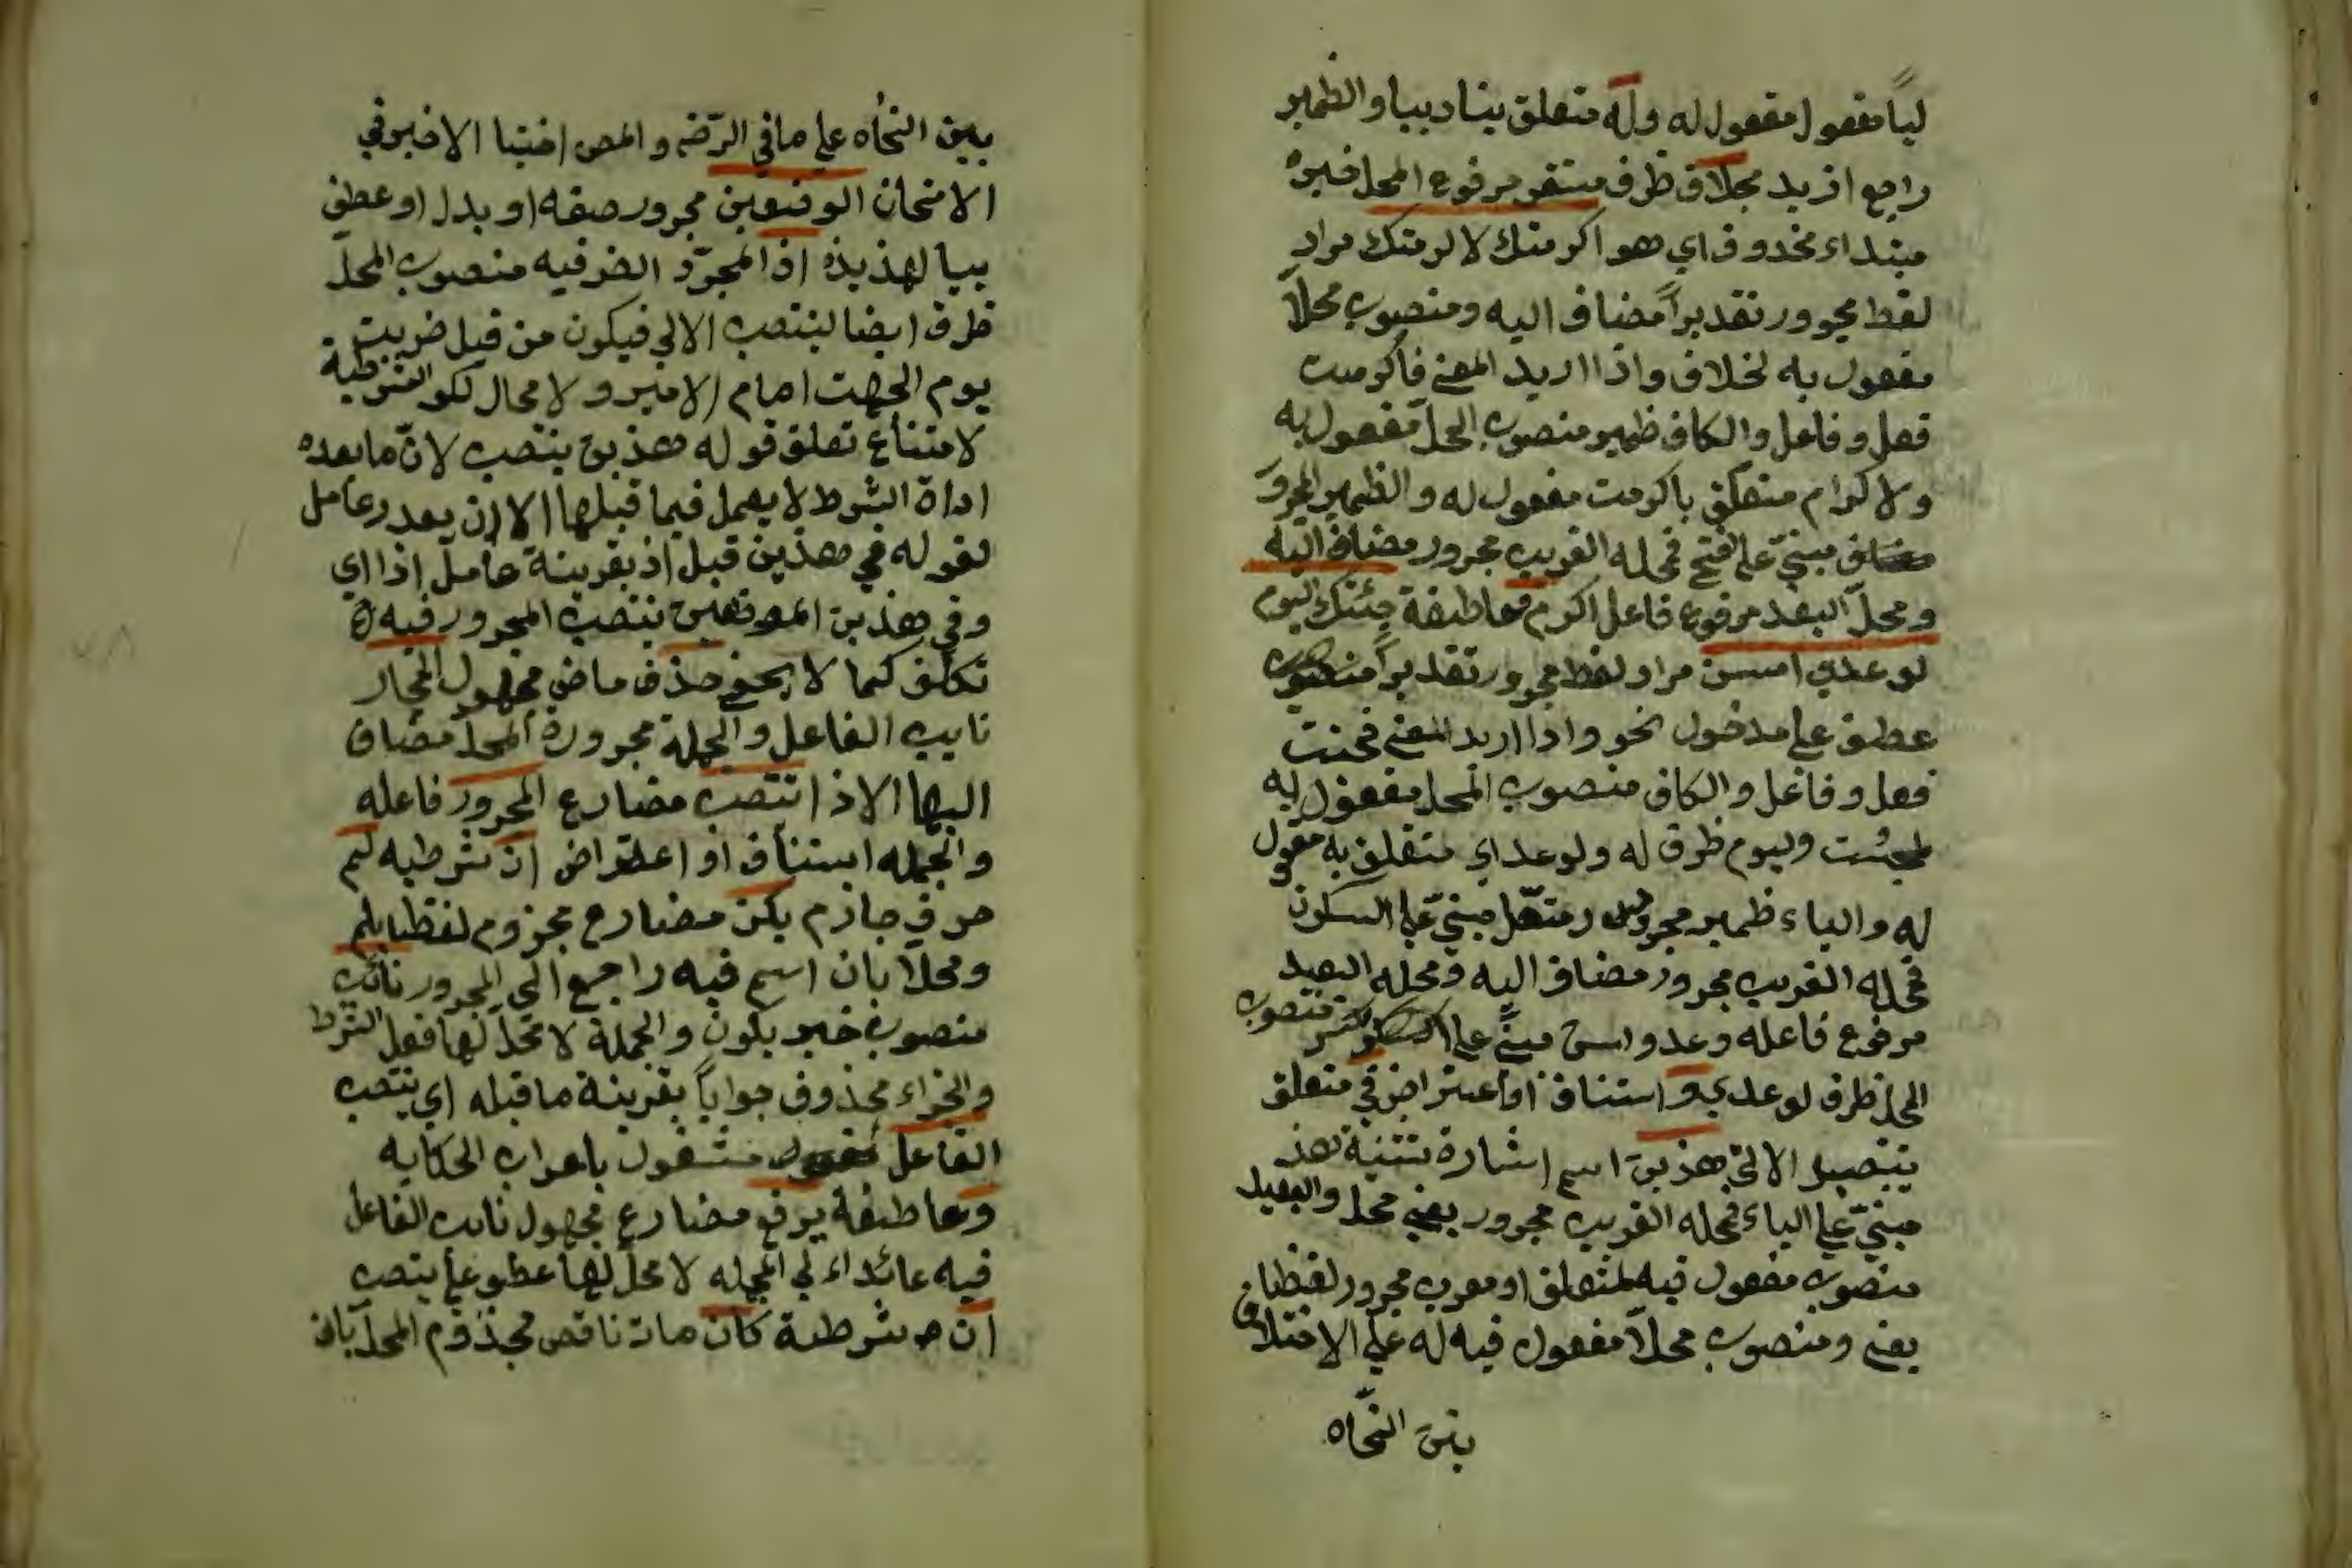 لياً مفعول مفعول له وله متعلق بناديبيا والظمير
راجع از يد محلاق ظرف مستقر مرفوع المحل خبره
مبتداء محذوف اي هو اكرمتك لاكرمتك مراد
لفظ مجرور تقديراً مضاف اليه ومنصوب محلاً
مفعول به لخلاف واذا اريد المعنى فاكرمت
فعل وفاعل والكاف ظمير منصوب المحل مفعول به
ولاكرام متعلق باكرمت مفعول له والظمير المجرور
مبنيّ على الفتح فمحله القريب مجرور مضاف اليه
ومحلّ البعيد مرفوع فاعل اكرم وعاطفة جئتك اليوم
لوعدي امسن مراد لفظ مجرور تقديراً منصوب
عطف على مدخول نحو واذا اريد المعنى فجئت
فعل وفاعل والكاف منصوب المحل مفعول به
لجئت واليوم ظرف له ولوعداي متعلق به مفعول
له والياء ظمير مجرور متصل مبنيّ على السكون
فمحله القريب مجرور مضاف اليه ومحله البعيد
مرفوع فاعله وعد وامس مبنيّ على الكسر منصوب
المحل ظرف لوعدي و استناف او اعتراض في متعلق
ينتصب الالى هذين اسم اشارة تثنية هذ
مبنيّ على الياء فمحله القريب مجرور بفي محل والبعيد
منصوب مفعول فيه لمتعلق او معرب مجرور لفظا
بفي ومنصوب محلاً مفعول فيه له على الاختلاف
بين النحاه
بين النحاه على ما في الرّضى والمص اختيا الاخير في
الامتحان الوضعين مجرور صفه او بدل او عطف
بيا لهذين اذا المجرّد الضرفيه منصوب المحلّ
ظرف ايضا لينتصب الالى فيكون من قبل ضربت
يوم الجهت امام الامير ولا محال لكو الشرطية
لامتناع تعلق قوله هذين ينتصب لانّ ما بعده
اداة الشرط لا يعمل فيما قبلها الا ان يعدر عامل
لقوله في هذين قبل اذ بقرينة عامل اذا اي
وفي هذين الموضعين ينتصب المجرور فيه
تكلّف كما لا يخفى حذف ماض مجهول المجار
نايب الفاعل والجملة مجرورة المحل مضاف
اليها الاذا انتصب مضارع المجرور فاعله
والجمله استناف او اعتراض ان شرطيه لم
حرف جازم يكن مضارع مجزوم لفظا بلم
ومحلاً بان اسم فيه راجع الى المجرور نائب
منصوب خبر يكون والجملة لا محل لها فعل الشرط
والجزاء محذوف جواباً بقرينة ما قبله اي ينتصب
الفاعل مشغول باعراب الحكايه
وعاطفة يرفع مضارع مجهول نايب الفاعل
فيه عائداء لي الجمله لا محل لها عطو على ينتصب
ان شرطية كان مات ناقص مجذوم المحل بان